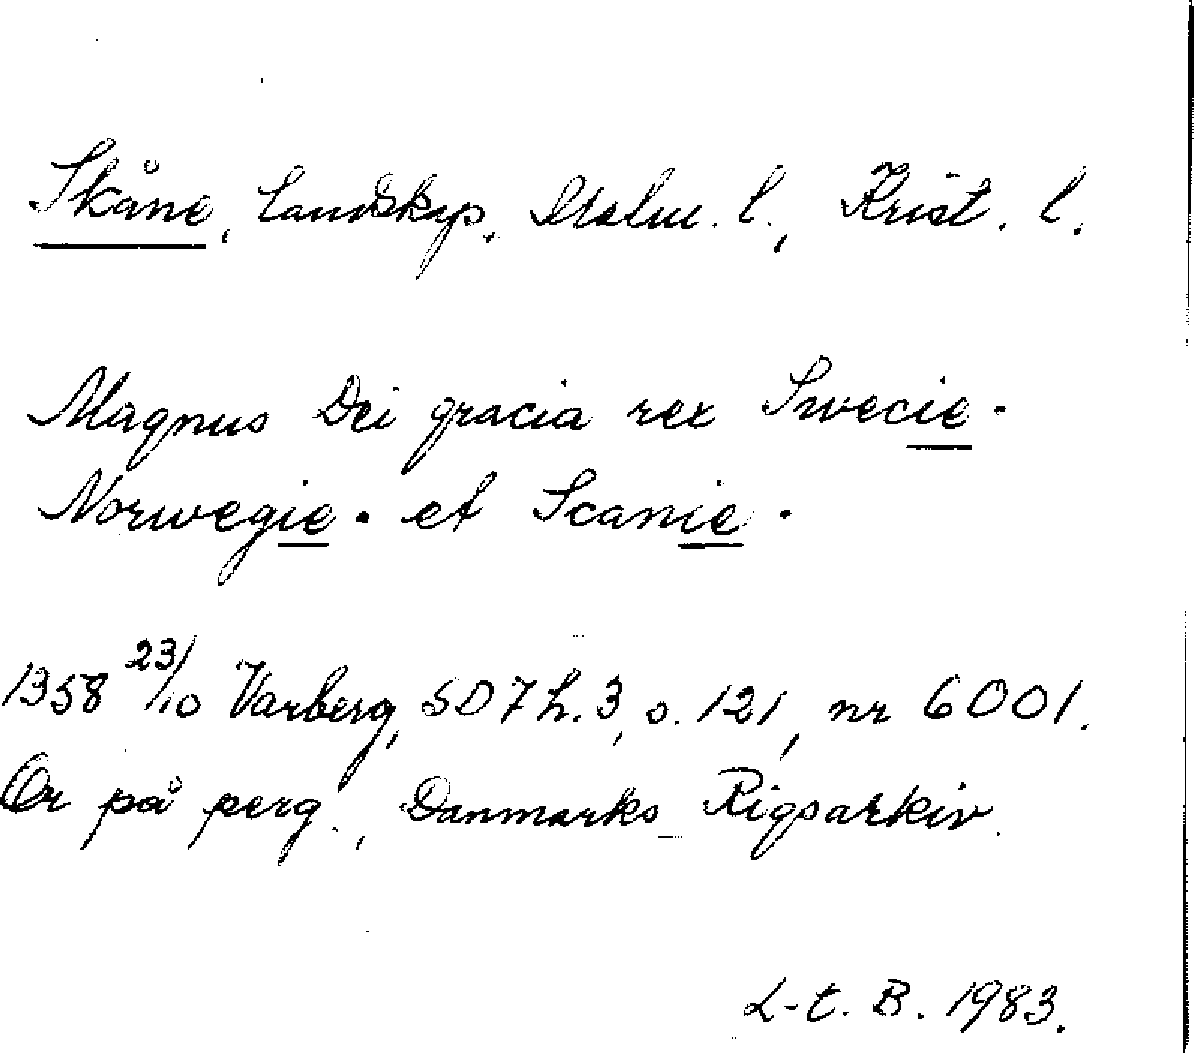 Skåne, Landskap, Malm. l., Krist. l.
Magnus Dei gracia rex Swecie.
Norwegie. et Scanie.
1358 23/10 Varberg, SD 7 h. 3, s. 121, nr 6001.
Or på perg., Danmarks Rigsarkiv.
L-t. B. 1983.